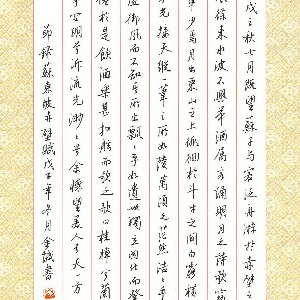 戌之秋七月既望蘇子与客泛舟游於赤壁之
徐来水波不興舉酒屬客誦明月之詩歌窈
少焉月出東山之上徘徊於斗牛之间白露橫
水光接天縱一葦之所如凌萬頃之茫然浩浩乎
虚御風而不知其所止飄飄乎如遺世獨立羽化而登
於是飲酒樂甚扣舷而歌之歌曰桂棹兮蘭
空明兮泝流光渺渺兮余懷望美人兮天一方
節録蘇東坡赤壁賦戊子年冬月金誠書